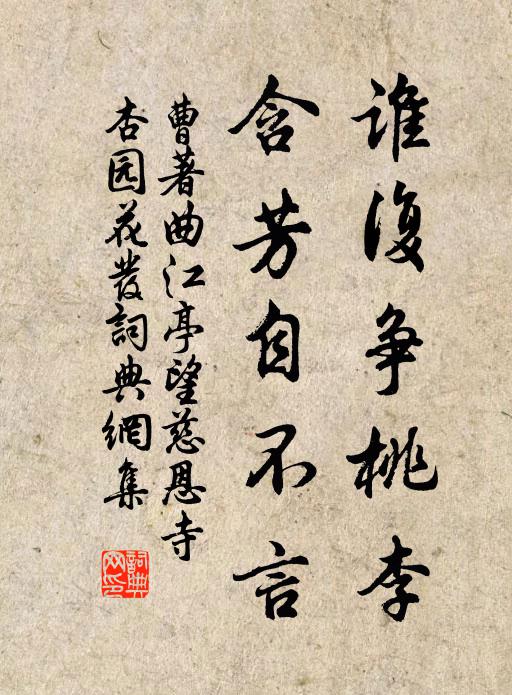 谁復争桃李
含芳自不言
曹著曲江亭望慈恩寺
杏园花發詞典網集
詞典
网印